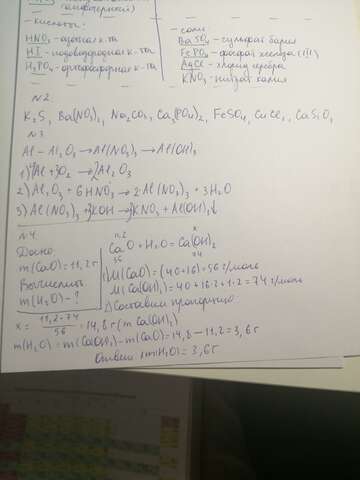 - кислоты:
HNO₃ - азотная к-та
HI - иодоводородная к-та
H₃PO₄ - ортофосфорная к-та
- соли
BaSO₄ - сульфат бария
FePO₄ - фосфат железа (III)
AgCl - хлорид серебра
KNO₃ - нитрат калия
№2
K₂S, Ba(NO₃)₂, Na₂CO₃, Ca₃(PO₄)₂, FeSO₄, CuCl₂, CaSiO₃
№3
Al - Al₂O₃ → Al(NO₃)₃ → Al(OH)₃
1) 4Al + 3O₂ → 2Al₂O₃
2) Al₂O₃ + 6HNO₃ → 2Al(NO₃)₃ + 3H₂O
3) Al(NO₃)₃ + 3KOH → 3KNO₃ + Al(OH)₃↓
№4
Дано
m(CaO) = 11,2 г
Вычислить
m(H₂O) - ?
11,2 x
CaO + H₂O = Ca(OH)₂
56 74
M(CaO) = (40+16) = 56 г/моль
M(Ca(OH)₂) = 40+16·2+1·2 = 74 г/моль
Составим пропорцию
x = 11,2·74 / 56 = 14,8 г (m Ca(OH)₂)
m(H₂O) = m(Ca(OH)₂) - m(CaO) = 14,8 - 11,2 = 3,6 г
Ответ: m(H₂O) = 3,6 г